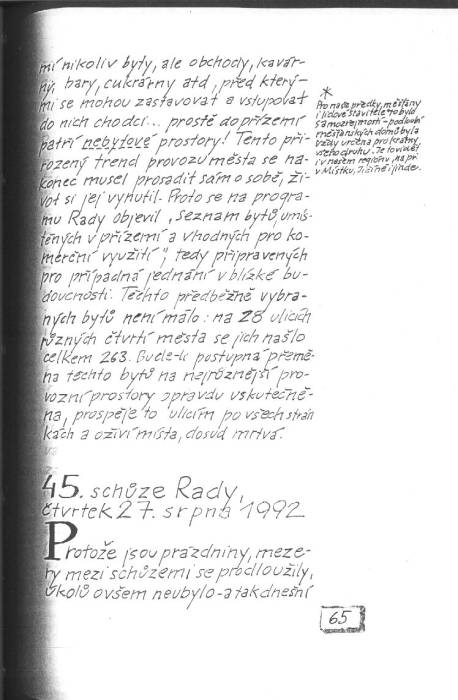 mi nikoliv byty, ale obchody, kavár-
ny, bary, cukrárny atd., před který-
mi se mohou zastavovat a vstupovat
do nich chodci... prostě do přízemí
patří nebytové prostory! Tento při-
rozený trend provozu města se na-
konec musel prosadit sám o sobě, ži-
vot si jej vynutil. Proto se na progra-
mu Rady objevil „Seznam bytů, umís-
těných v přízemí a vhodných pro ko-
merční využití", tedy připravených
pro případná jednání v blízké bu-
doucnosti. Těchto předběžně vybra-
ných bytů není málo: na 28 ulicích
různých čtvrtí města se jich našlo
celkem 263. Bude-li postupná přemě-
na těchto bytů na nejrůznější pro-
vozní prostory opravdu uskutečně-
na, prospěje to ulicím po všech strán-
kách a oživí místa, dosud mrtvá.
*
Pro naše předky, měšťany
i lidové stavitele to byla
samozřejmost - podloubí
měšťanských domů byla
vždy určena pro krámy
všeho druhu. Je to vidět
i v našem regionu, na př.
v Místku, Jičíně i jinde.
45. schůze Rady,
čtvrtek 27. srpna 1992
Protože jsou prázdniny, meze-
ry mezi schůzemi se prodloužily,
úkolů ovšem neubylo - a tak dnešní
65